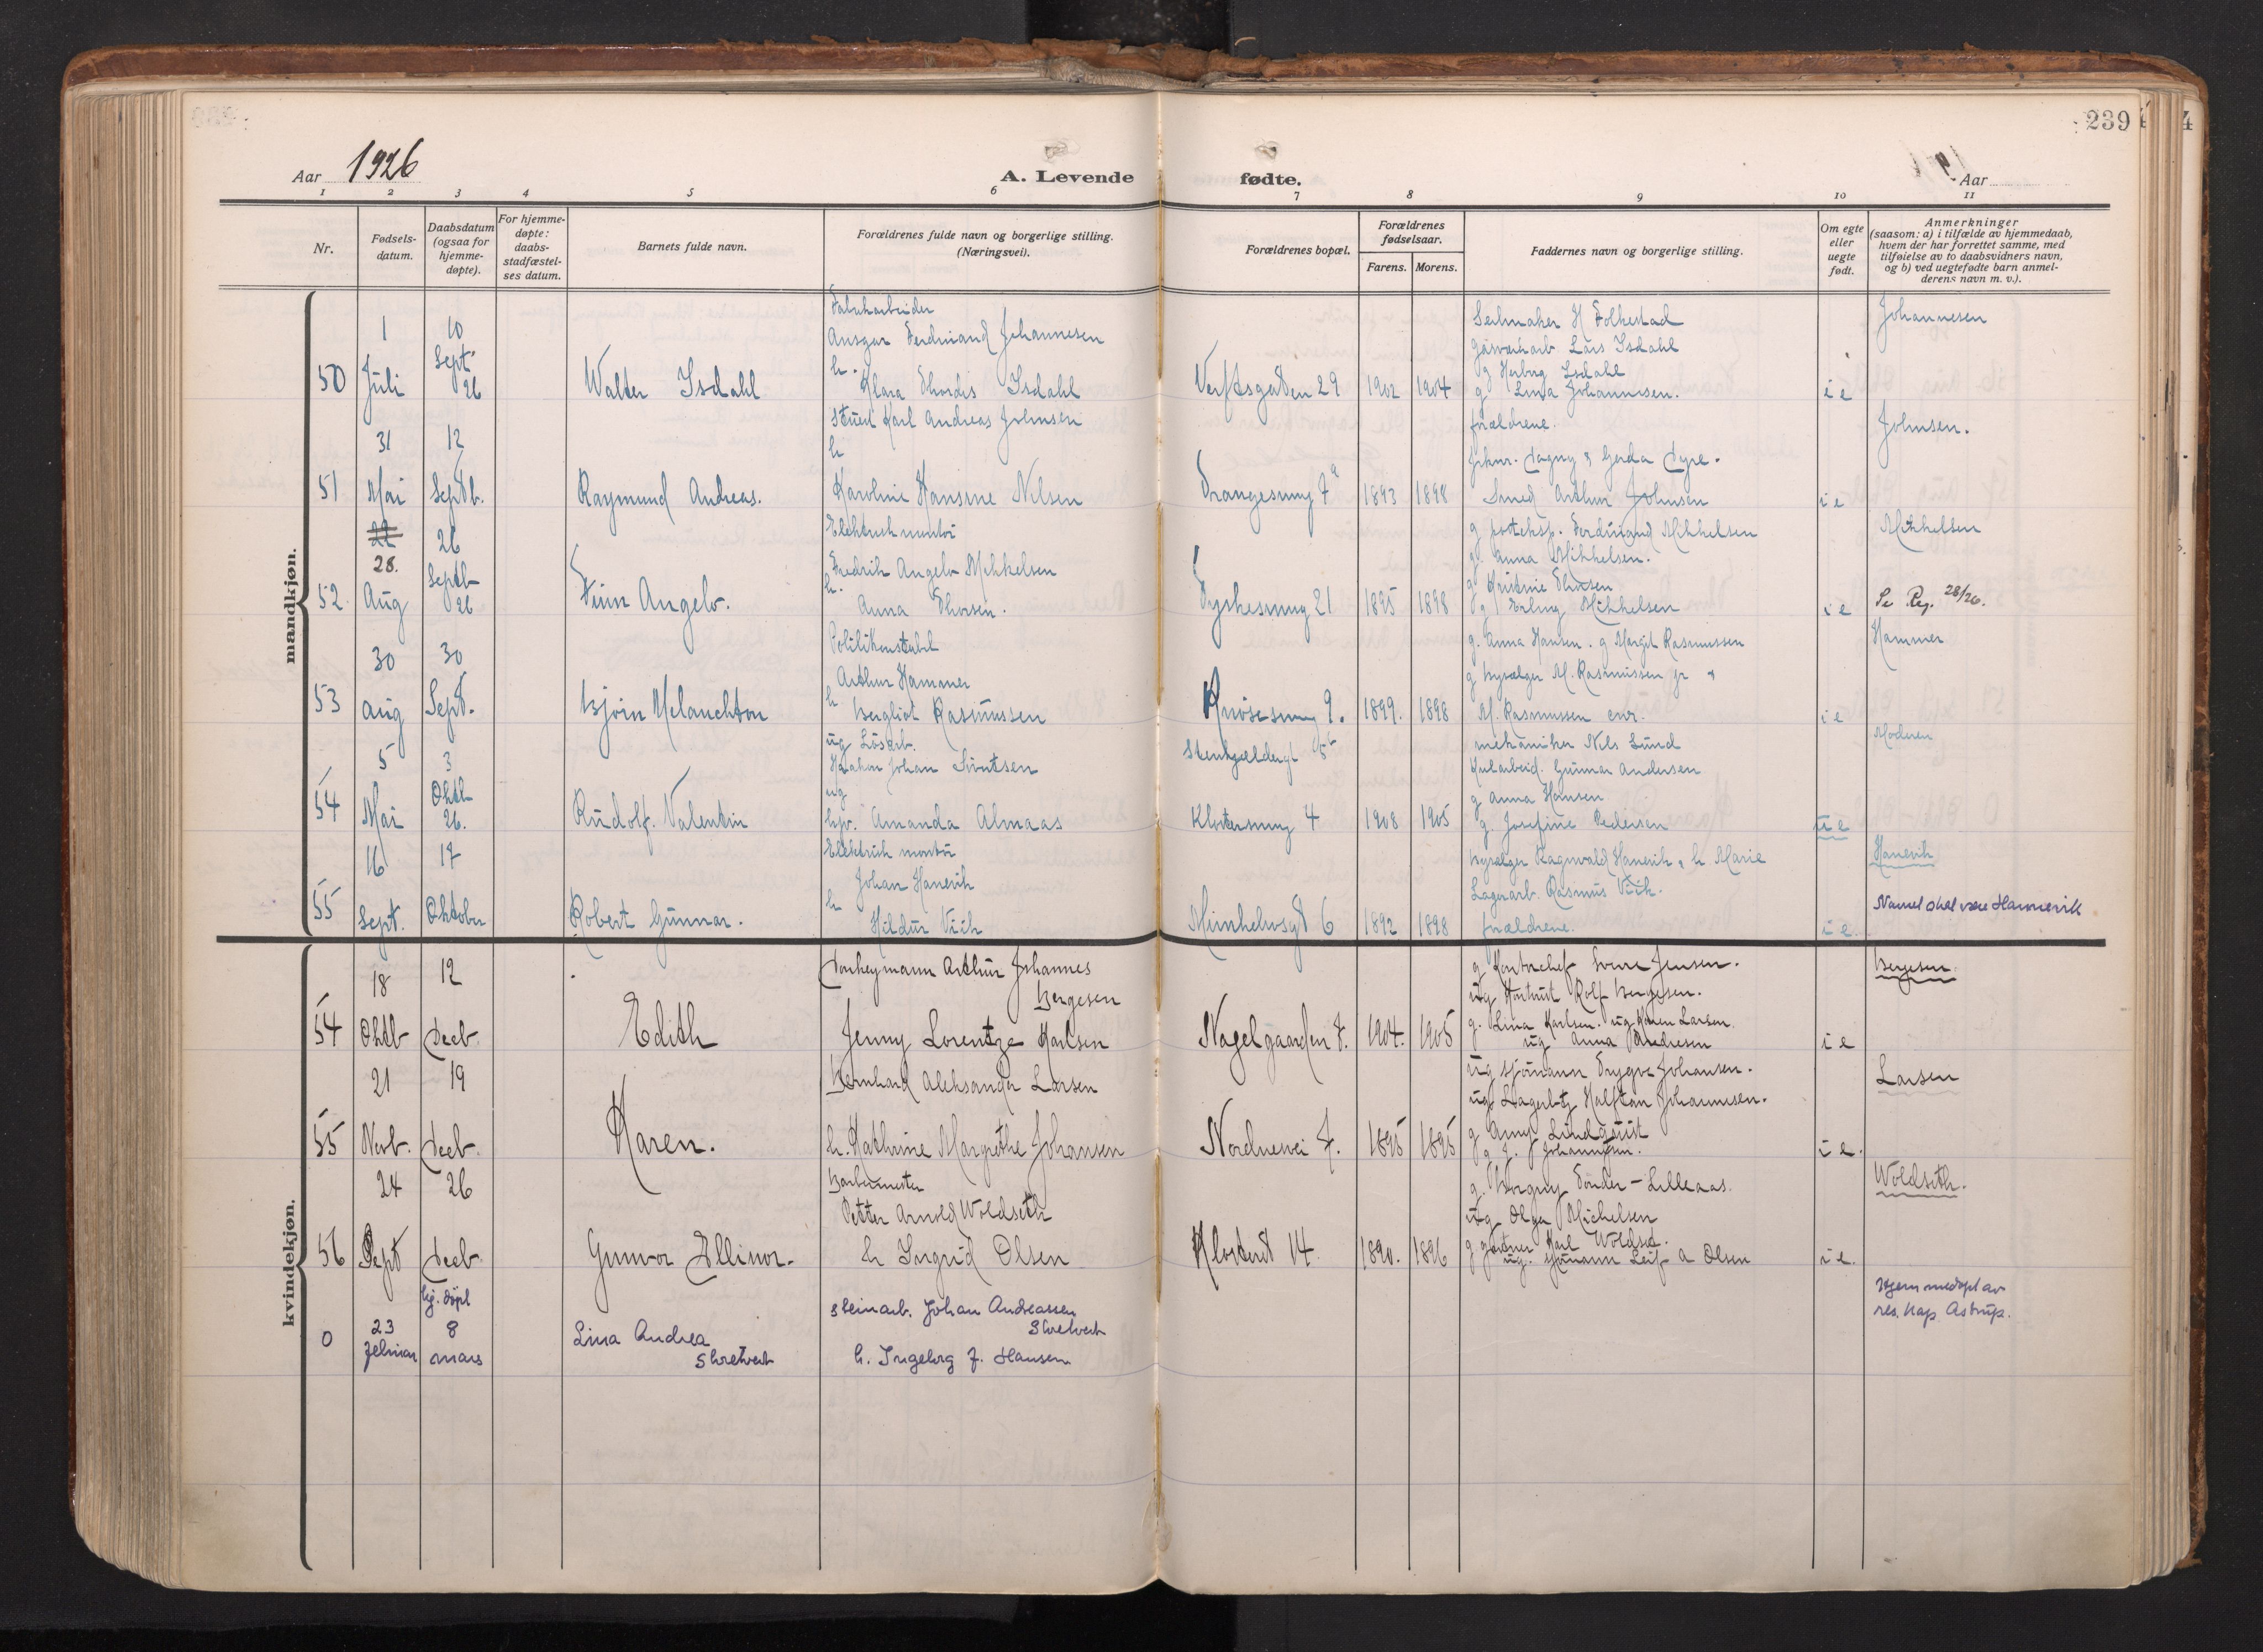 239
Aar 1926
A. Levende fødte.
Aar
1 2 3 4 5 6 7 8 9 10 11
Nr.
Fødsels-
datum.
Daabsdatum
(ogsaa for
hjemme-
døpte).
For hjemme-
døpte:
daabs-
stadfæstel-
ses datum.
Barnets fulde navn.
Forældrenes fulde navn og borgerlige stilling.
(Næringsvei).
Forældrenes bopæl.
Forældrenes
fødselsaar.
Farens. Morens.
Faddernes navn og borgerlige stilling.
Om egte
eller
uegte
født.
Anmerkninger
(saasom: a) i tilfælde av hjemmedaab,
hvem der har forrettet samme, med
tilføielse av to daabsvidners navn,
og b) ved uegtefødte barn anmel-
derens navn m. v.).
mandkjøn.
50
1
Juli
10
Sept
26
Walter Isdahl
Fabrikarbeider
Ansgar Ferdinand Johannesen
h.
Klara Thordis Isdahl
Verftsgaten 29
1902
1904
Seilmaker H Folkestad
Gasverkarb Lars Isdahl
g Herborg Isdahl
g Lina Johannesen.
i e
Johannesen
51
31
Mai
12
Septb.
Raymund Andreas.
Stuert Karl Andreas Johnsen
h
Karoline Hansine Nilsen
Prangesmug 7a
1893
1898
forældrene.
frknr. Dagny & Gerda Dyre.
Smed Arthur Johnsen
i e
Johnsen.
52
28.
Aug
26
Septb
26
Finn Angelo.
Elektrisk montör
Fredrik Angelo Mikkelsen
h.
Anna Thorsen.
Tyskesmug 21
1895
1898
g posteksp. Ferdinand Mikkelsen
g. Anna Mikkelsen.
g Kristine Thorsen
g Erling Mikkelsen
i e
Mikkelsen
Se Reg. 28/26.
53
30
aug
30
Sept.
Bjørn Melanchton
Politikonstabel
Arthur Hammer
h
Bergliot Rasmussen
Knøsesmug 9.
1899.
1898
g. Anna Hansen. g Margit Rasmussen
g Byselger M. Rasmussen jr &
M. Rasmussen enr.
i e
Hammer
54
5
Mai
3
Oktb
26.
Rudolf. Valentin
ug Løsarb.
Haakon Johan Sivertsen
ug
hjv. Amanda Almaas
Stenkjeldergt 5b
Klostersmug 4
1908
1905
mekaniker Nils Lund
Kularbeid. Gunnar Andersen
g Anna Hansen
g. Josefine Pedersen
u e
Moderen
55
16
Sept.
17
Oktober
Robert Gunnar.
Elektrisk montör
Johan Hanevik
h
Hildur Viik
Munkebosgt 6
1892
1898
Byselger Ragnvald Hanevik & h. Marie
Lagerarb. Rasmus Viik.
forældrene.
i e.
Hanevik
Navnet skal være Hannevik
kvindekjøn.
54
18
Oktb
12
Decb.
Edith
Donkeymann Arthur Johannes
Bergesen
Jenny Lorentze Karlsen
Nagelgaarden 7.
1904.
1905
g Kontorchef Sverre Jensen.
ug Kontorist Rolf Bergesen.
g. Lina Karlsen. ug Karen Larsen.
ug Anna Andresen
i e
Bergesen.
55
21
Novb.
19
Decb.
Karen.
Bernhard Aleksander Larsen
h. Kathrine Margrethe Johansen
Nordnesvei 7.
1895
1895
ug sjømann Trygve Johansen.
ug. Lagerbtj Halfdan Johannesen.
g Amy Lindqvist
i e.
Larsen
56
24
Sept
26
Decb.
Gunvor Ellinor.
Barbermester
Petter Arnold Woldseth
h Ingrid Olsen
Klosteret 14.
1890.
1896
g. Borgny Sønder-Lilleaas.
ug Olga Michelsen
g gartner Karl Woldset.
ug. sjømann Leif A Olsen
i e.
Woldseth.
0
23
februar
hj. døpt
8
mars
Lina Andrea
Skretvedt
steinarb. Johan Andreassen
Skretvedt
h. Ingeborg F. Hansen
Hjemmedøpt av
res. kap. Astrup.